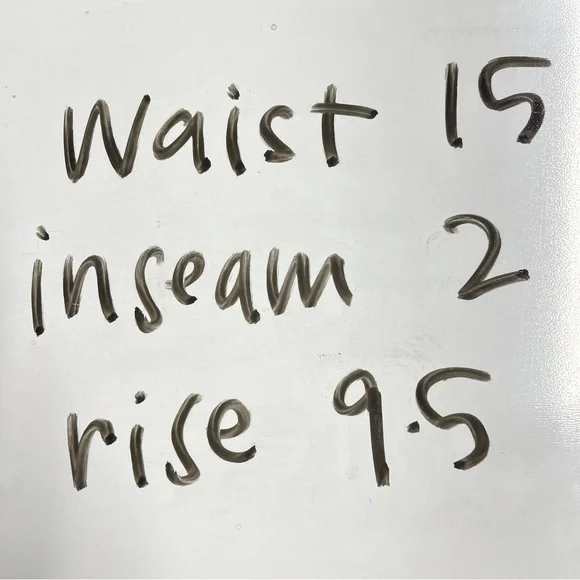 Waist 15
inseam 2
rise 9.5